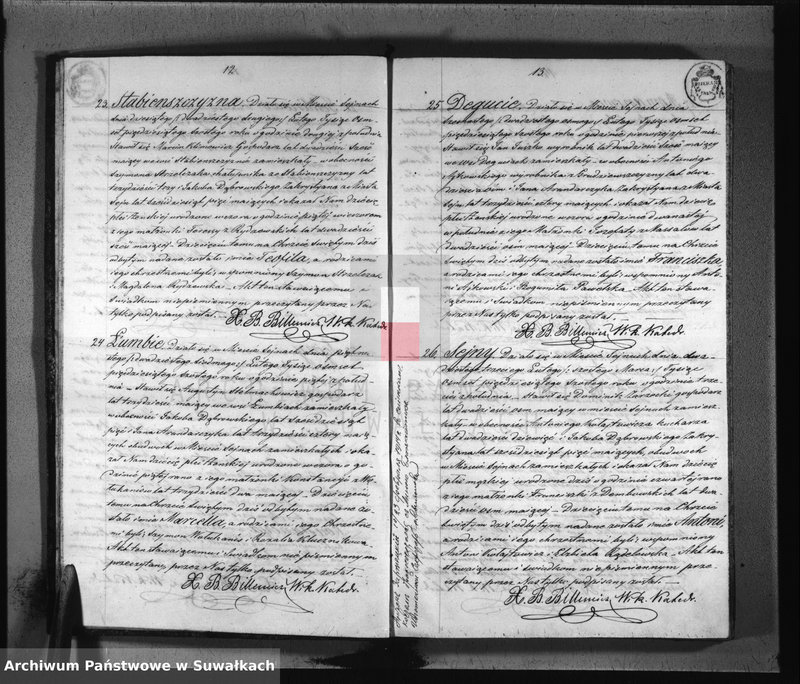 12.
23. Stabienszczyzna. Działo się w Mieście Sejnach
dnia dziesiątego / dwudziestego drugiego / Lutego Tysiąc Osm
set pięćdziesiątego szóstego roku o godzinie drugiej z południa
Stawił się Marcin Klimowicz Gospodarz lat dwadzieścia sześć
mający we wsi Stabienszczyznie zamieszkały w obecności
Szymona Strzelczaka chałupnika ze Stabienszczyzny lat
trzydzieści trzy i Jakuba Dąbrowskiego Zakrystyana z Miasta
Sejn lat sześćdziesiąt pięć mających i okazał Nam dziecię
płci żeńskiej urodzone wczora o godzinie piątej wieczorem
z jego małżonki Teressy z Rydzewskich lat dwadzieścia
sześć mającej. Dziecięciu temu na Chrzcie Świętym dziś
odbytym nadane zostało imię Teofila, a rodzicami
jego chrzestnemi byli: wspomniony Szymon Strzelczak
i Magdalena Rydzewska. Akt ten stawającemu i
świadkom niepiśmiennym przeczytany przez Na-
tylko podpisany został.
X. B. Billewicz W. k. Katedr.
24. Łumbie. Działo się w Mieście Sejnach dnia piętna-
stego / dwudziestego siódmego / Lutego Tysiąc ośmset
pięćdziesiątego szóstego roku o godzinie piątej z połud-
nia. Stawił się Augustyn Stelmachowicz gospodarz
lat trzydzieści mający we wsi Łumbiach zamieszkały
w obecności Jakuba Dąbrowskiego lat sześćdziesiąt
pięć i Jana Arendarczyka lat trzydzieści cztery mają-
cych obudwóch w Mieście Sejnach zamieszkałych i oka-
zał Nam dziecię płci żeńskiej urodzone wczora o go-
dzinie piątej rano z jego małżonki Konstancji z
lat trzydzieści dwa mającej. Dziecięciu
temu na Chrzcie Świętym dziś odbytym nadane zo-
stało imię Marcella, a rodzicami jego Chrzestne-
mi byli: Szymon i Rozalia
Akt ten stawającemu i świadkom niepiśmiennym
przeczytany, przez Nas tylko podpisany został.
X. B. Billewicz W. k. Katedr.
13.
25. Degucie. Działo się w Mieście Sejnach dnia
szesnastego / dwudziestego ósmego / Lutego Tysiąc ośmset
pięćdziesiątego szóstego roku o godzinie pierwszej z południa
Stawił się Jan wyrobnik lat dwadzieścia sześć mający
we wsi Deguciach zamieszkały w obecności Antoniego
wyrobnika z lat dwa
dzieścia ośm i Jana Arendarczyka Zakrystyana z Miasta
Sejn lat trzydzieści cztery mających i okazał Nam dziecię
płci żeńskiej urodzone wczora o godzinie dwunastej
w południe z jego Małżonki Jozefaty z lat
dwadzieścia ośm mającej. Dziecięciu temu na Chrzcie
Świętym dziś odbytym nadane zostało imię Franciszka,
a rodzicami jego chrzestnemi byli: wspomniony Anto-
ni i Bogumiła Pawolska. Akt ten stawa-
jącemu i świadkom niepiśmiennym przeczytany
przez Nas tylko podpisany został.
X. B. Billewicz W. k. Katedr.
26. Sejny. Działo się w Mieście Sejnach dnia dwu-
dziestego trzeciego Lutego / szóstego Marca / Tysiąc
ośmset pięćdziesiątego szóstego roku o godzinie trze-
ciej z południa. Stawił się Dominik Zaręcki gospodarz
lat dwadzieścia ośm mający w mieście Sejnach zamiesz-
kały w obecności Antoniego Kułajtowicza kucharza
lat dwadzieścia dziewięć i Jakuba Dąbrowskiego Zakry-
styana lat sześćdziesiąt pięć mających, obudwóch
w Mieście Sejnach zamieszkałych i okazał Nam dziecię
płci męzkiej urodzone dziś o godzinie czwartej rano
z jego małżonki Franciszki z Dembowskich lat dwa
dzieścia ośm mającej. Dziecięciu temu na Chrzcie
świętym dziś odbytym nadane zostało imię Antoni,
a rodzicami jego chrzestnemi byli: wspomniony
Antoni Kułajtowicz i Elżbieta Akt ten
stawającemu i świadkom niepiśmiennym prze-
czytany przez Nas tylko podpisany został.
X. B. Billewicz W. k. Katedr.
Archiwum Państwowe w Suwałkach